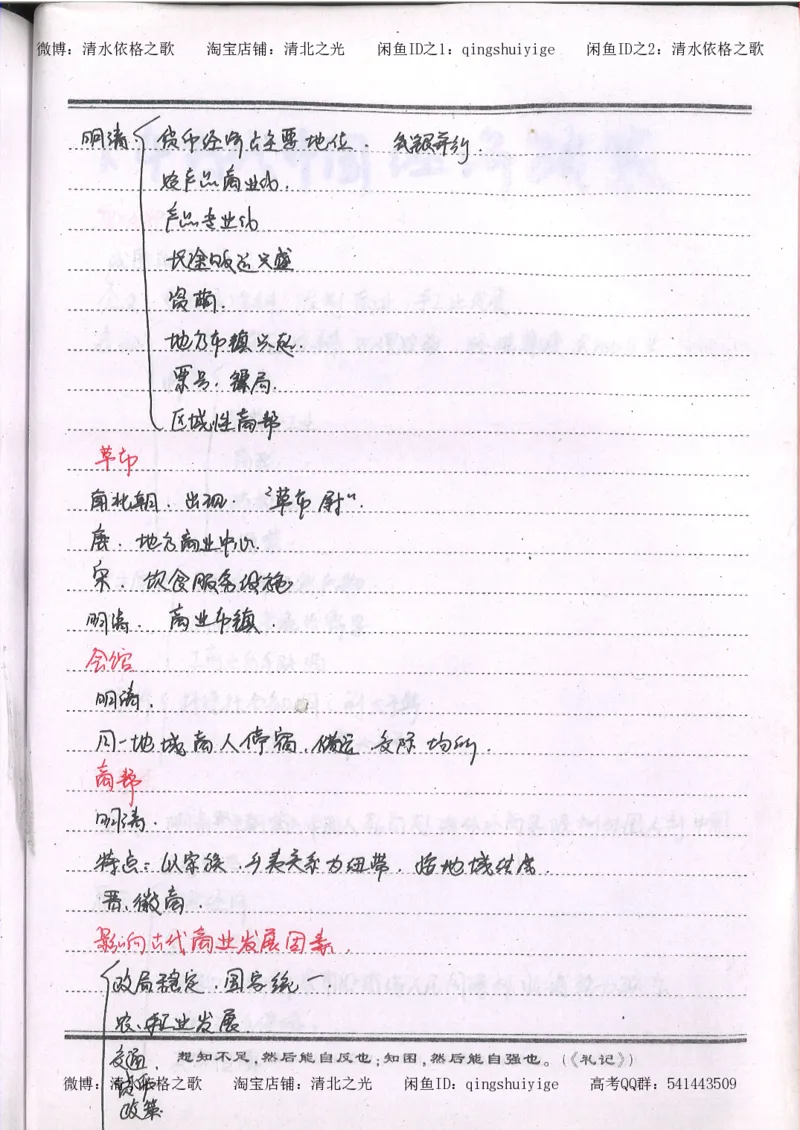 微博：清水依格之歌 淘宝店铺：清北之光 闲鱼ID之1：qingshuiyige 闲鱼ID之2：清水依格之歌
明清 货币经济占主要地位.
农产品商业化.
产品专业化
长途贩运兴盛
资萌.
地方市镇兴起.
票号. 镖局.
区域性商帮
草市
南北朝. 出现. “草市尉”.
唐. 地方商业中心.
宋. 饮食服务设施
明清. 商业市镇.
会馆
明清.
同一地域商人停宿. 储运 交际场所.
商帮
明清.
特点：以宗族. 乡里关系为纽带. 按地域结成.
晋. 徽商
影响古代商业发展因素.
政局稳定. 国家统一.
农. 手工业发展
交通.
想知不足，然后能自反也；知困，然后能自强也。（《礼记》）
货币
微博：清水依格之歌 淘宝店铺：清北之光 闲鱼ID之1：qingshuiyige 高考QQ群：541443509
政策